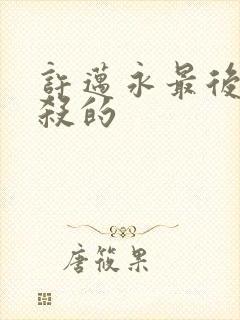 許邁永最後
殺的
唐筱果